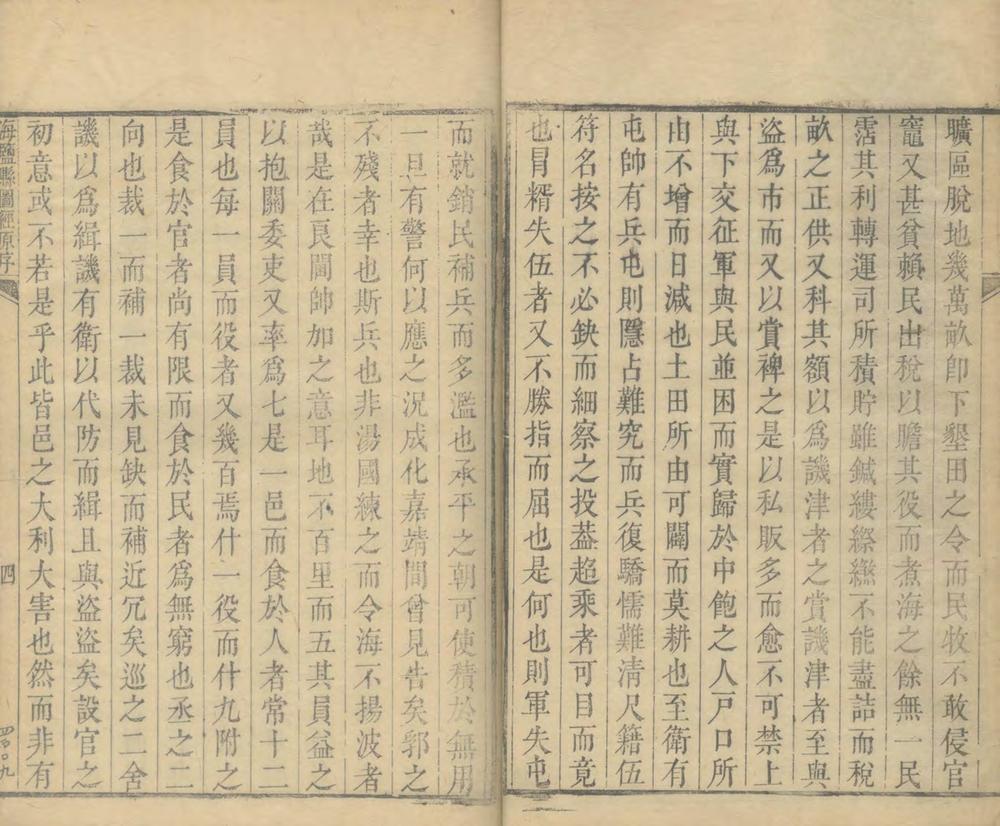 曠區脫地幾萬畝卽下墾田之令而民牧不敢侵官
竈又甚貧賴民出稅以贍其役而煮海之餘無一民
霑其利轉運司所積貯雖鍼縷繇不能盡詰而稅
畝之正供又科其額以爲譏津者之賞譏津者至與
盜爲市而又以賞裨之是以私販多而愈不可禁上
與下交征軍與民並困而實歸於中飽之人戸口所
由不增而日減也土田所由可闢而莫耕也至衛有
屯帥有兵屯則隱占難究而兵復驕懦難淸尺籍伍
符名按之不必缺而細察之投葢超乘者可目而竟
也冒糈失伍者又不勝指而屈也是何也則軍失屯
而就銷民補兵而多濫也承平之朝可使積於無用
一旦有警何以應之況成化嘉靖間曾見告矣郭之
不殘者幸也斯兵也非湯國練之而令海不揚波者
哉是在良閫帥加之意耳地不百里而五其員益之
以抱關委吏又率爲七是一邑而食於人者常十二
員也每一員而役者又幾百焉什一役而什九附之
是食於官者尚有限而食於民者爲無窮也丞之二
向也裁一而補一裁未見缺而補近冗矣巡之二舍
譏以爲緝譏有衛以代防而緝且與盜盜矣設官之
初意或不若是乎此皆邑之大利大害也然而非有
海鹽縣圖經原序
四